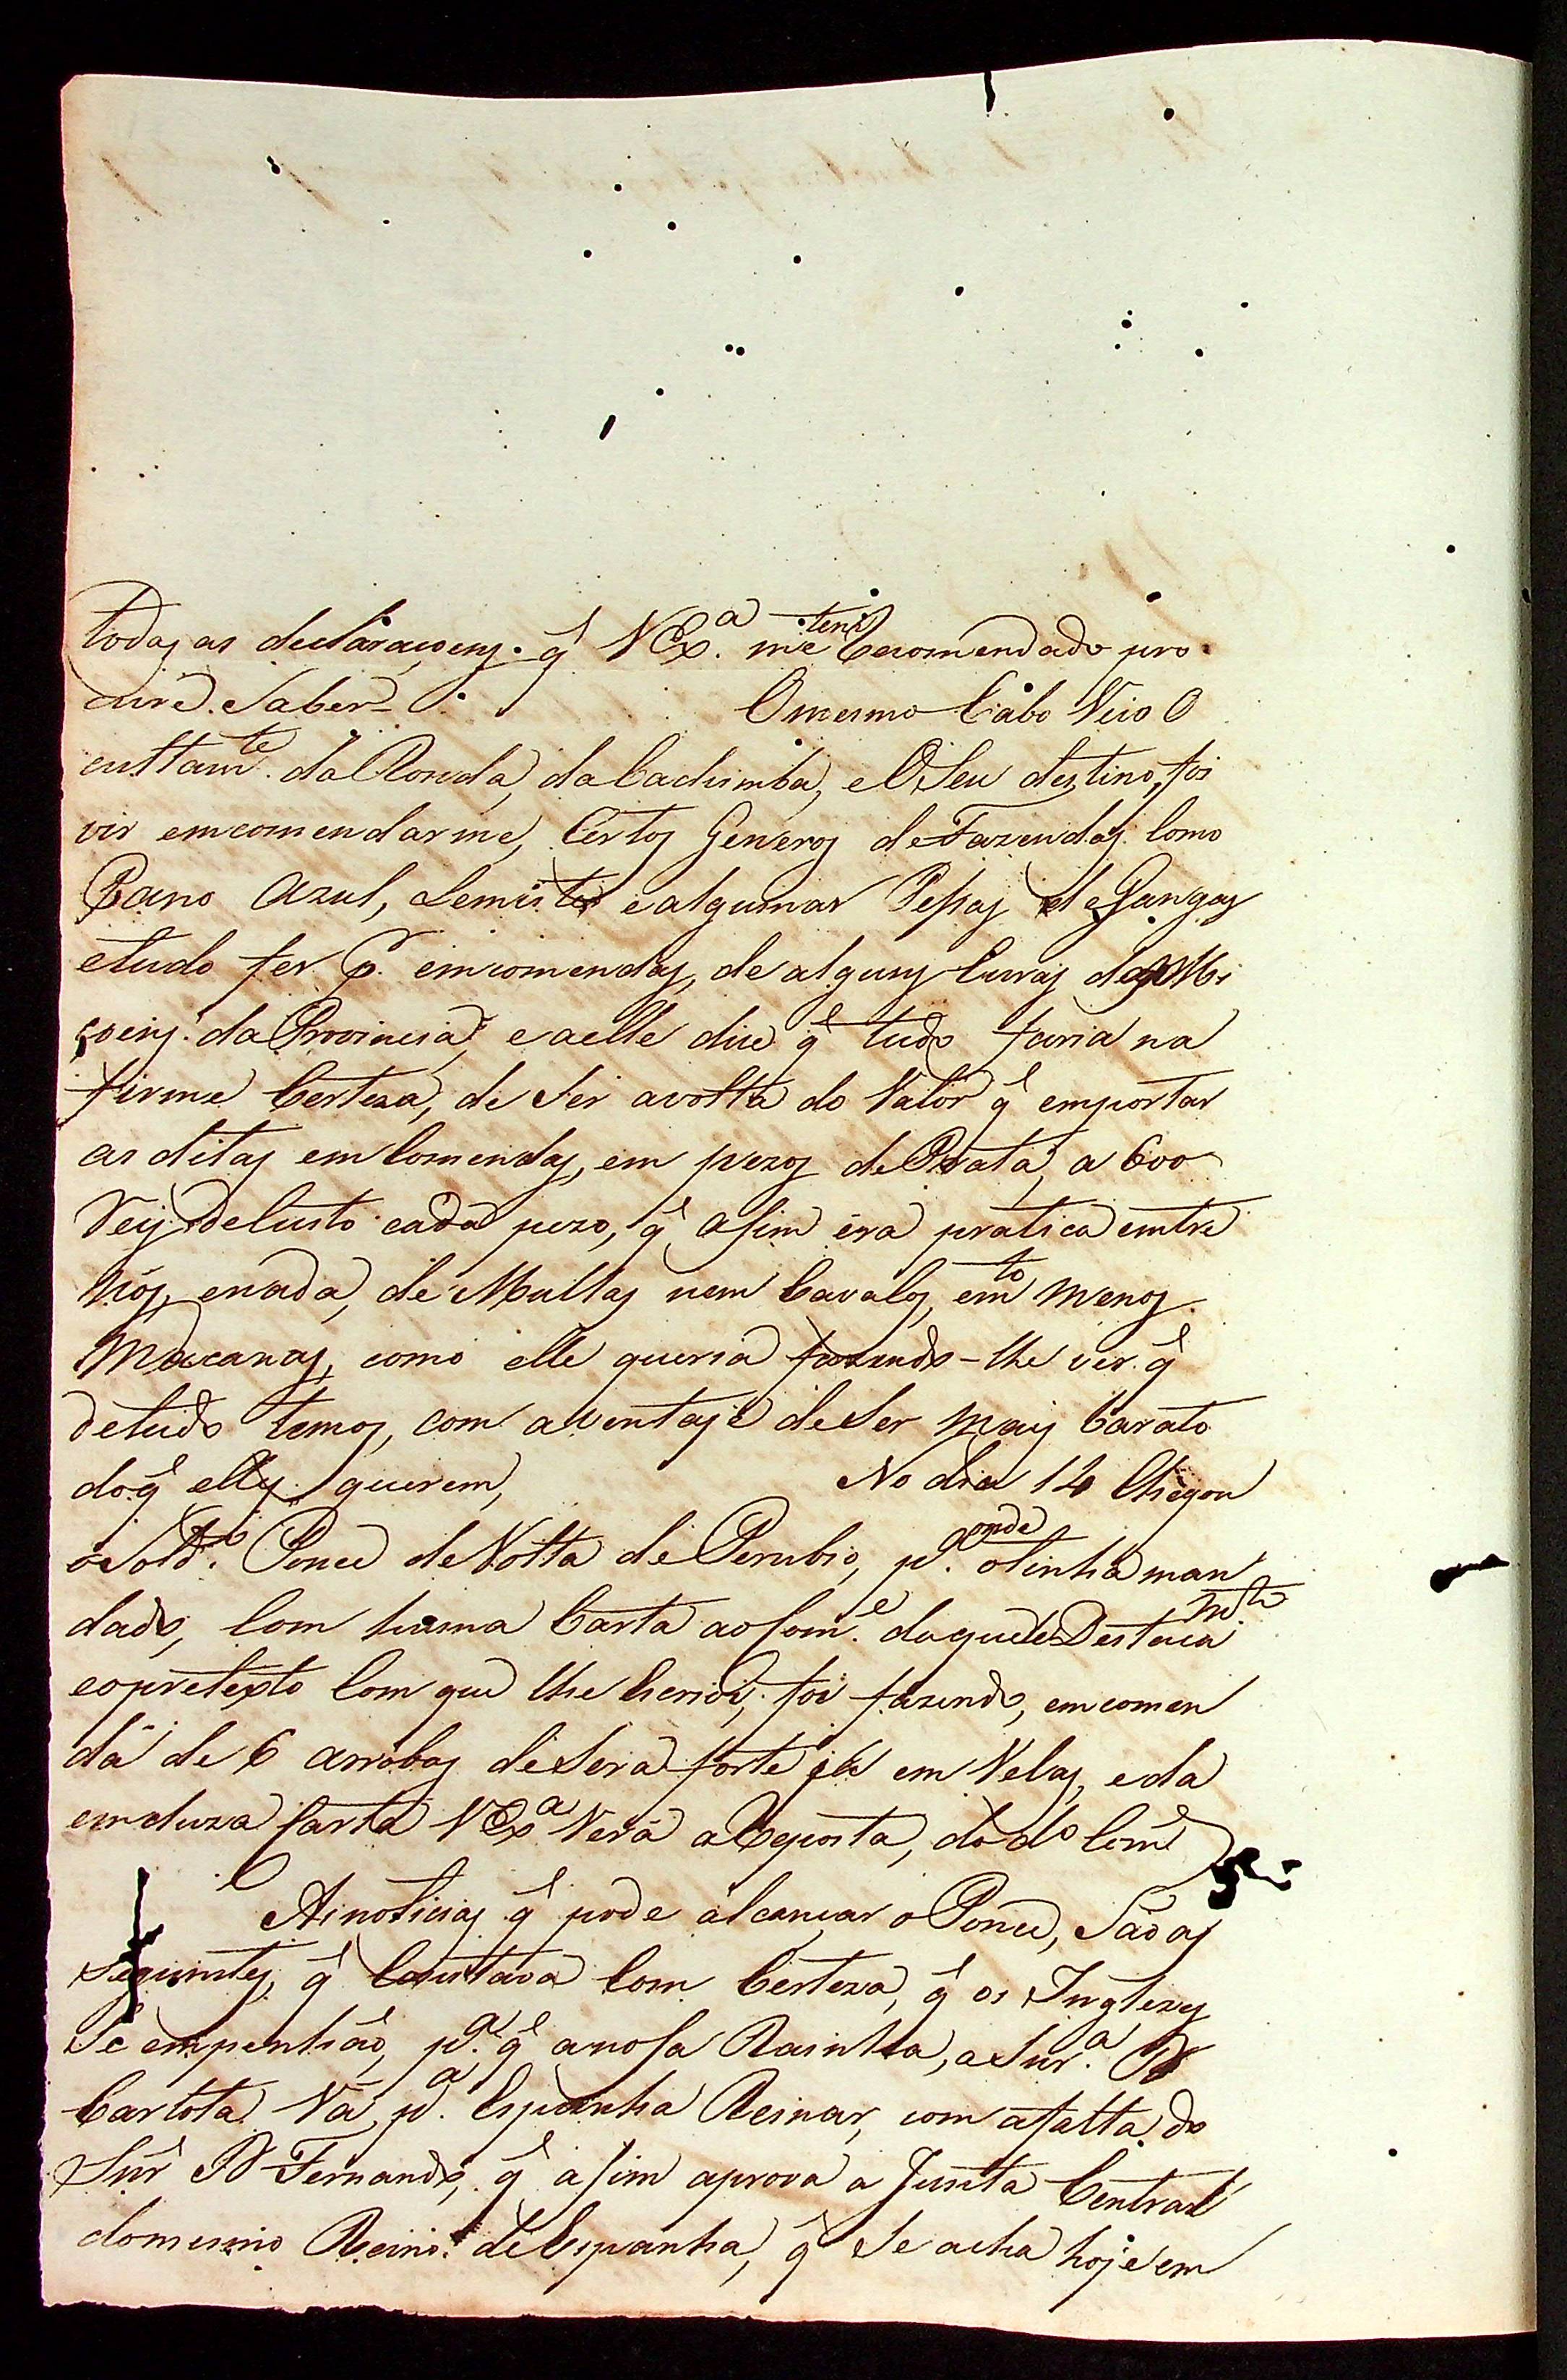 todas as declaraçoens. q̃ V Exª. me tem Recomendado pro
cure. Saber = O mesmo Cabo Veio O
cultamte. da Ronda, da Cachimba, e O Seu destino, foi
vir emcomendarme, Certos Generos de Fazendas Como
Pano Azul, Lemiste e algumas Pessas de Gangas
etudo fes pr. emcomendas, de alguns Curas das Mi
çoens. da Provincia, e a elle dice q̃ tudo faria na
firme Certeza, de Ser avolta do Valor q̃ emportar
as ditas emComendas, em pezos de Prata, a 600
Reis de Custo cada pezo, q̃ asim éra pratica entre
nós, enada, de Mullas nem Cavalos, emto menos
Macanas, como elle queria fazendo-lhe ver. q̃
detudo temos, com aventaje de Ser Mais barato
doq̃ elles querem, No dia 14 Chegou
o Soldo. Ponce de Volta de Perubio, pª. onde o tinha man
dado, Com huma Carta ao Come. daquele Destaca
mto
eopretexto Com que lhe Escrivi, foi fazendo, emcomen
da de 6 arrobas de Sera forte já em Velas, e da
emcluza Carta V Exª Verá a Reposta, do do Come
As noticias q̃ pode alcancar o Ponce, Saõ as
Seguintes, q̃ Constava Com Certeza, q̃ os Inglezes
Se empenhaõ, pª. q̃ anosa Rainha, a Snrª. D
Carlota Vá, pª. Espanha Reinar, com afalta do
Snr̃ D Fernando, q̃ asim aprova a Junta Central
domesmo Reino. de Espanha, q̃ Se acha hoje em